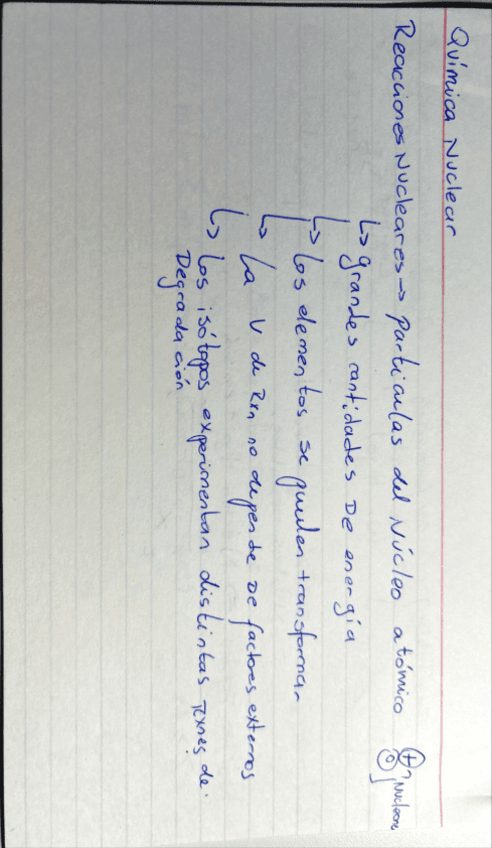 Química Nuclear
Reacciones Nucleares → partículas del Núcleo atómico + 0 Nucleones
↳ grandes cantidades De energía
↳ Los elementos se pueden transformar
↳ La V de Rxn no depende De factores externos
↳ Los isótopos experimentan distintas rxnes de
Degradación